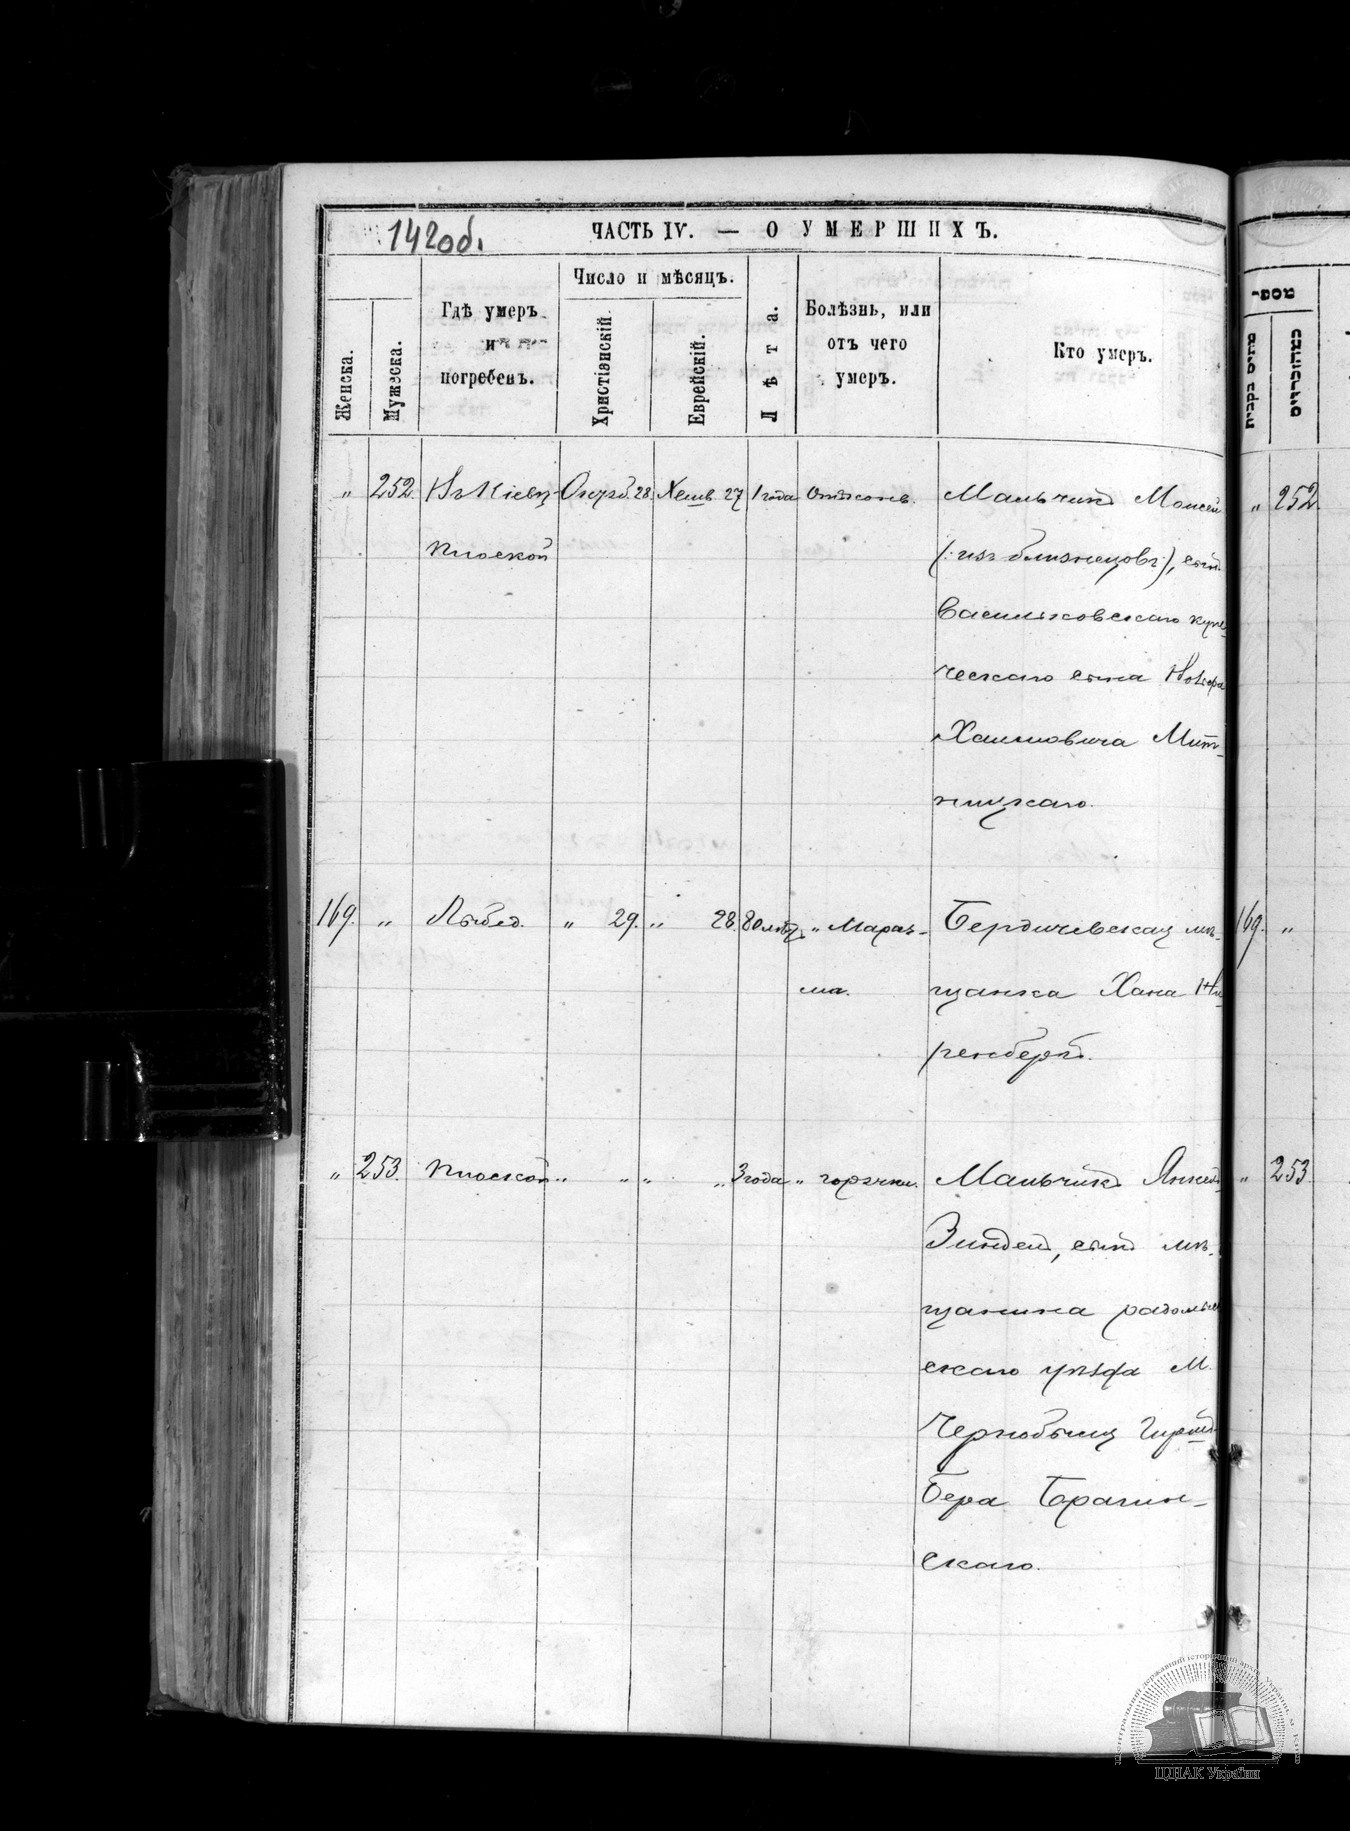 142об.
ЧАСТЬ IV. — О УМЕРШИХЪ.
Женска.
Мужеска.
Гдѣ умеръ
и
погребенъ.
Число и мѣсяцъ.
Христіанскій.
Еврейскій.
Лѣта.
Болѣзнь, или
отъ чего
умеръ.
Кто умеръ.
" 252. Въ Кіевѣ Октяб. 28. Хешв 27 1 года Мальчикъ Моисей
Плоской (: изъ близнецовъ :), сынъ
Васильковскаго купе-
ческаго сына
Хаимовича Мит-
ницкаго.
169. " Лыбед. " 29. " 28. 80 лѣтъ " Мараз- Бердичевская мѣ-
ма. щанка Хана Ни
ренбергъ.
" 253. Плоской " " " " 3 года " горячки. Мальчикъ Янкель
Зиндель, сынъ мѣ-
щанина радомысл
скаго уѣзда М.
Чернобыля
Бера Брагин-
скаго.
מספר
" 252.
169. "
" 253.
ЦДІАК України